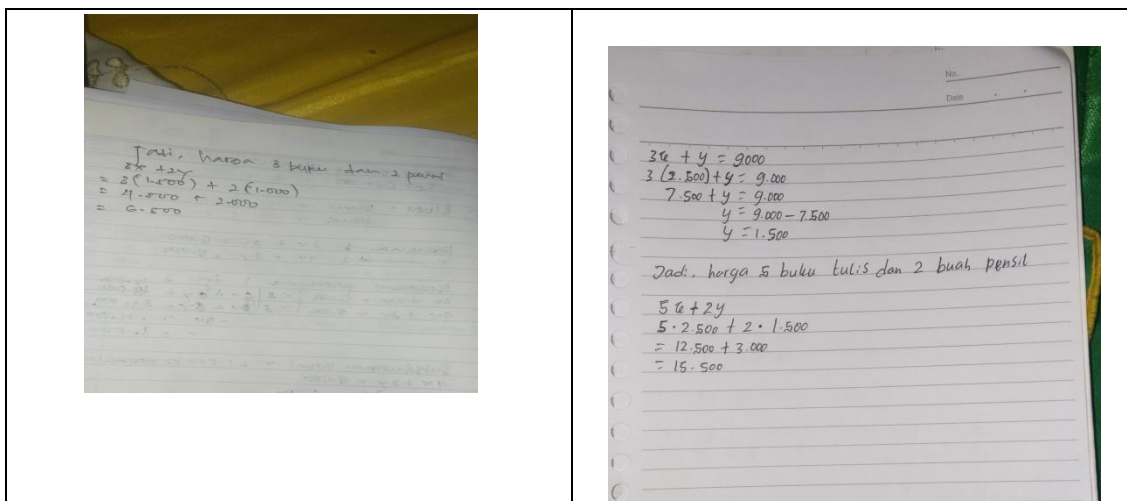 Jadi, harga 3 buku dan 2 pensil
3x + 2y
= 3(1.500) + 2(1.000)
= 4.500 + 2.000
= 6.500
No.
Date
3x + y = 9.000
3(2.500) + y = 9.000
7.500 + y = 9.000
y = 9.000 - 7.500
y = 1.500
Jadi. harga 5 buku tulis dan 2 buah pensil
5x + 2y
5 · 2.500 + 2 · 1.500
= 12.500 + 3.000
= 15.500